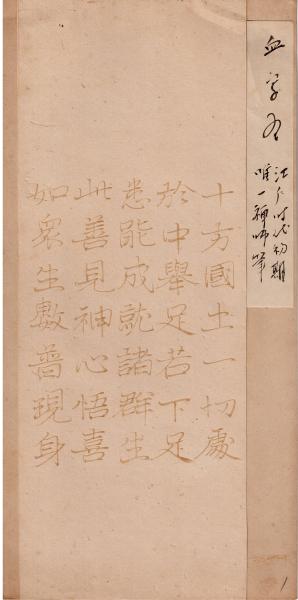 血字
江戸時代初期
唯一禅師筆
十方國土一切處
於中舉足若下足
悉能成就諸群生
此善見神心悟喜
如衆生數普現身
1